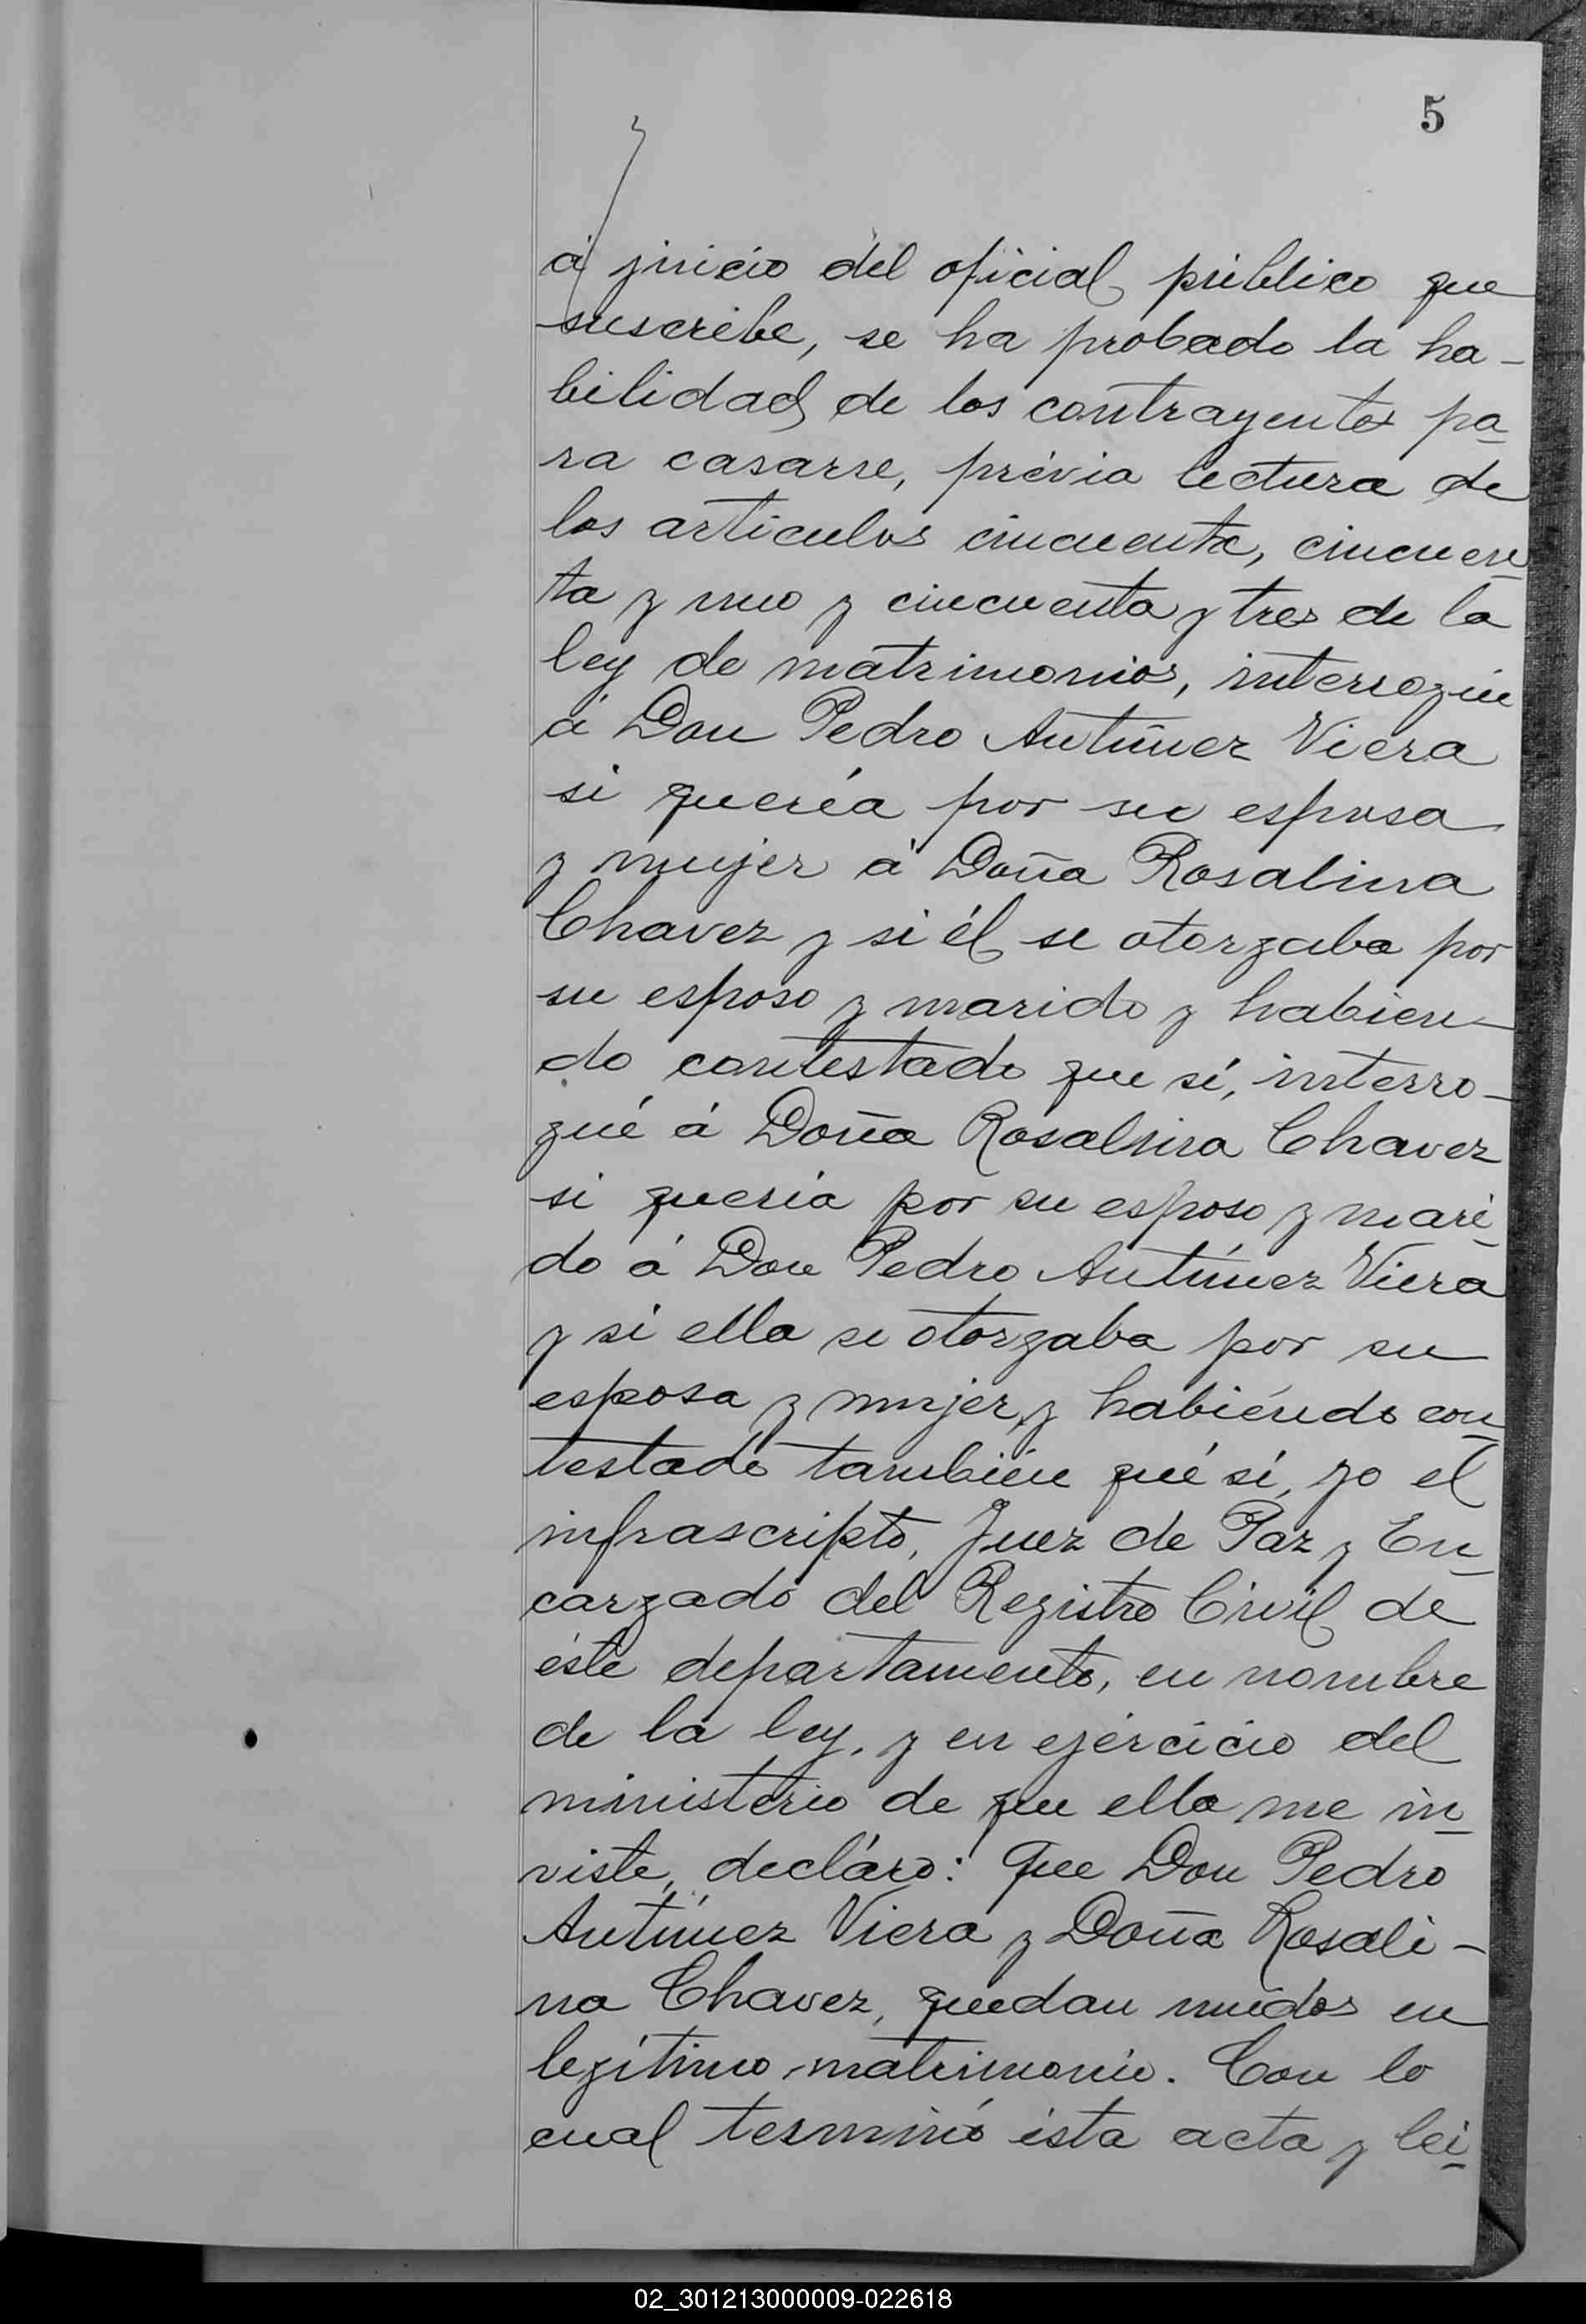 5
á juicio del oficial público que
suscribe, se ha probado la ha-
bilidad de los contrayentes pa-
ra casarse, prévia lectura de
los articulos cincuenta, cincuen-
ta y uno y cincuenta y tres de la
ley de matrimonios, interrogué
á Don Pedro Antúnez Viera
si quería por su esposa
y mujer á Doña Rosalina
Chavez y si él se otorgaba por
su esposo y marido y habien-
do contestado que sí, interro-
gué á Doña Rosalina Chavez
si quería por su esposo y mari-
do á Don Pedro Antúnez Viera
y si ella se otorgaba por su
esposa y mujer, y habiéndo con-
testado también qué sí, yo el
infrascripto, Juez de Paz y En-
cargado del Registro Civil de
éste departamento, en nombre
de la ley, y en ejercicio del
ministerio de que ella me in-
viste, decláro: Que Don Pedro
Antúnez Viera y Doña Rosali-
na Chavez, quedan unidos en
legítimo matrimonio. Con lo
cual terminó ésta acta y lei-
02_301213000009-022618